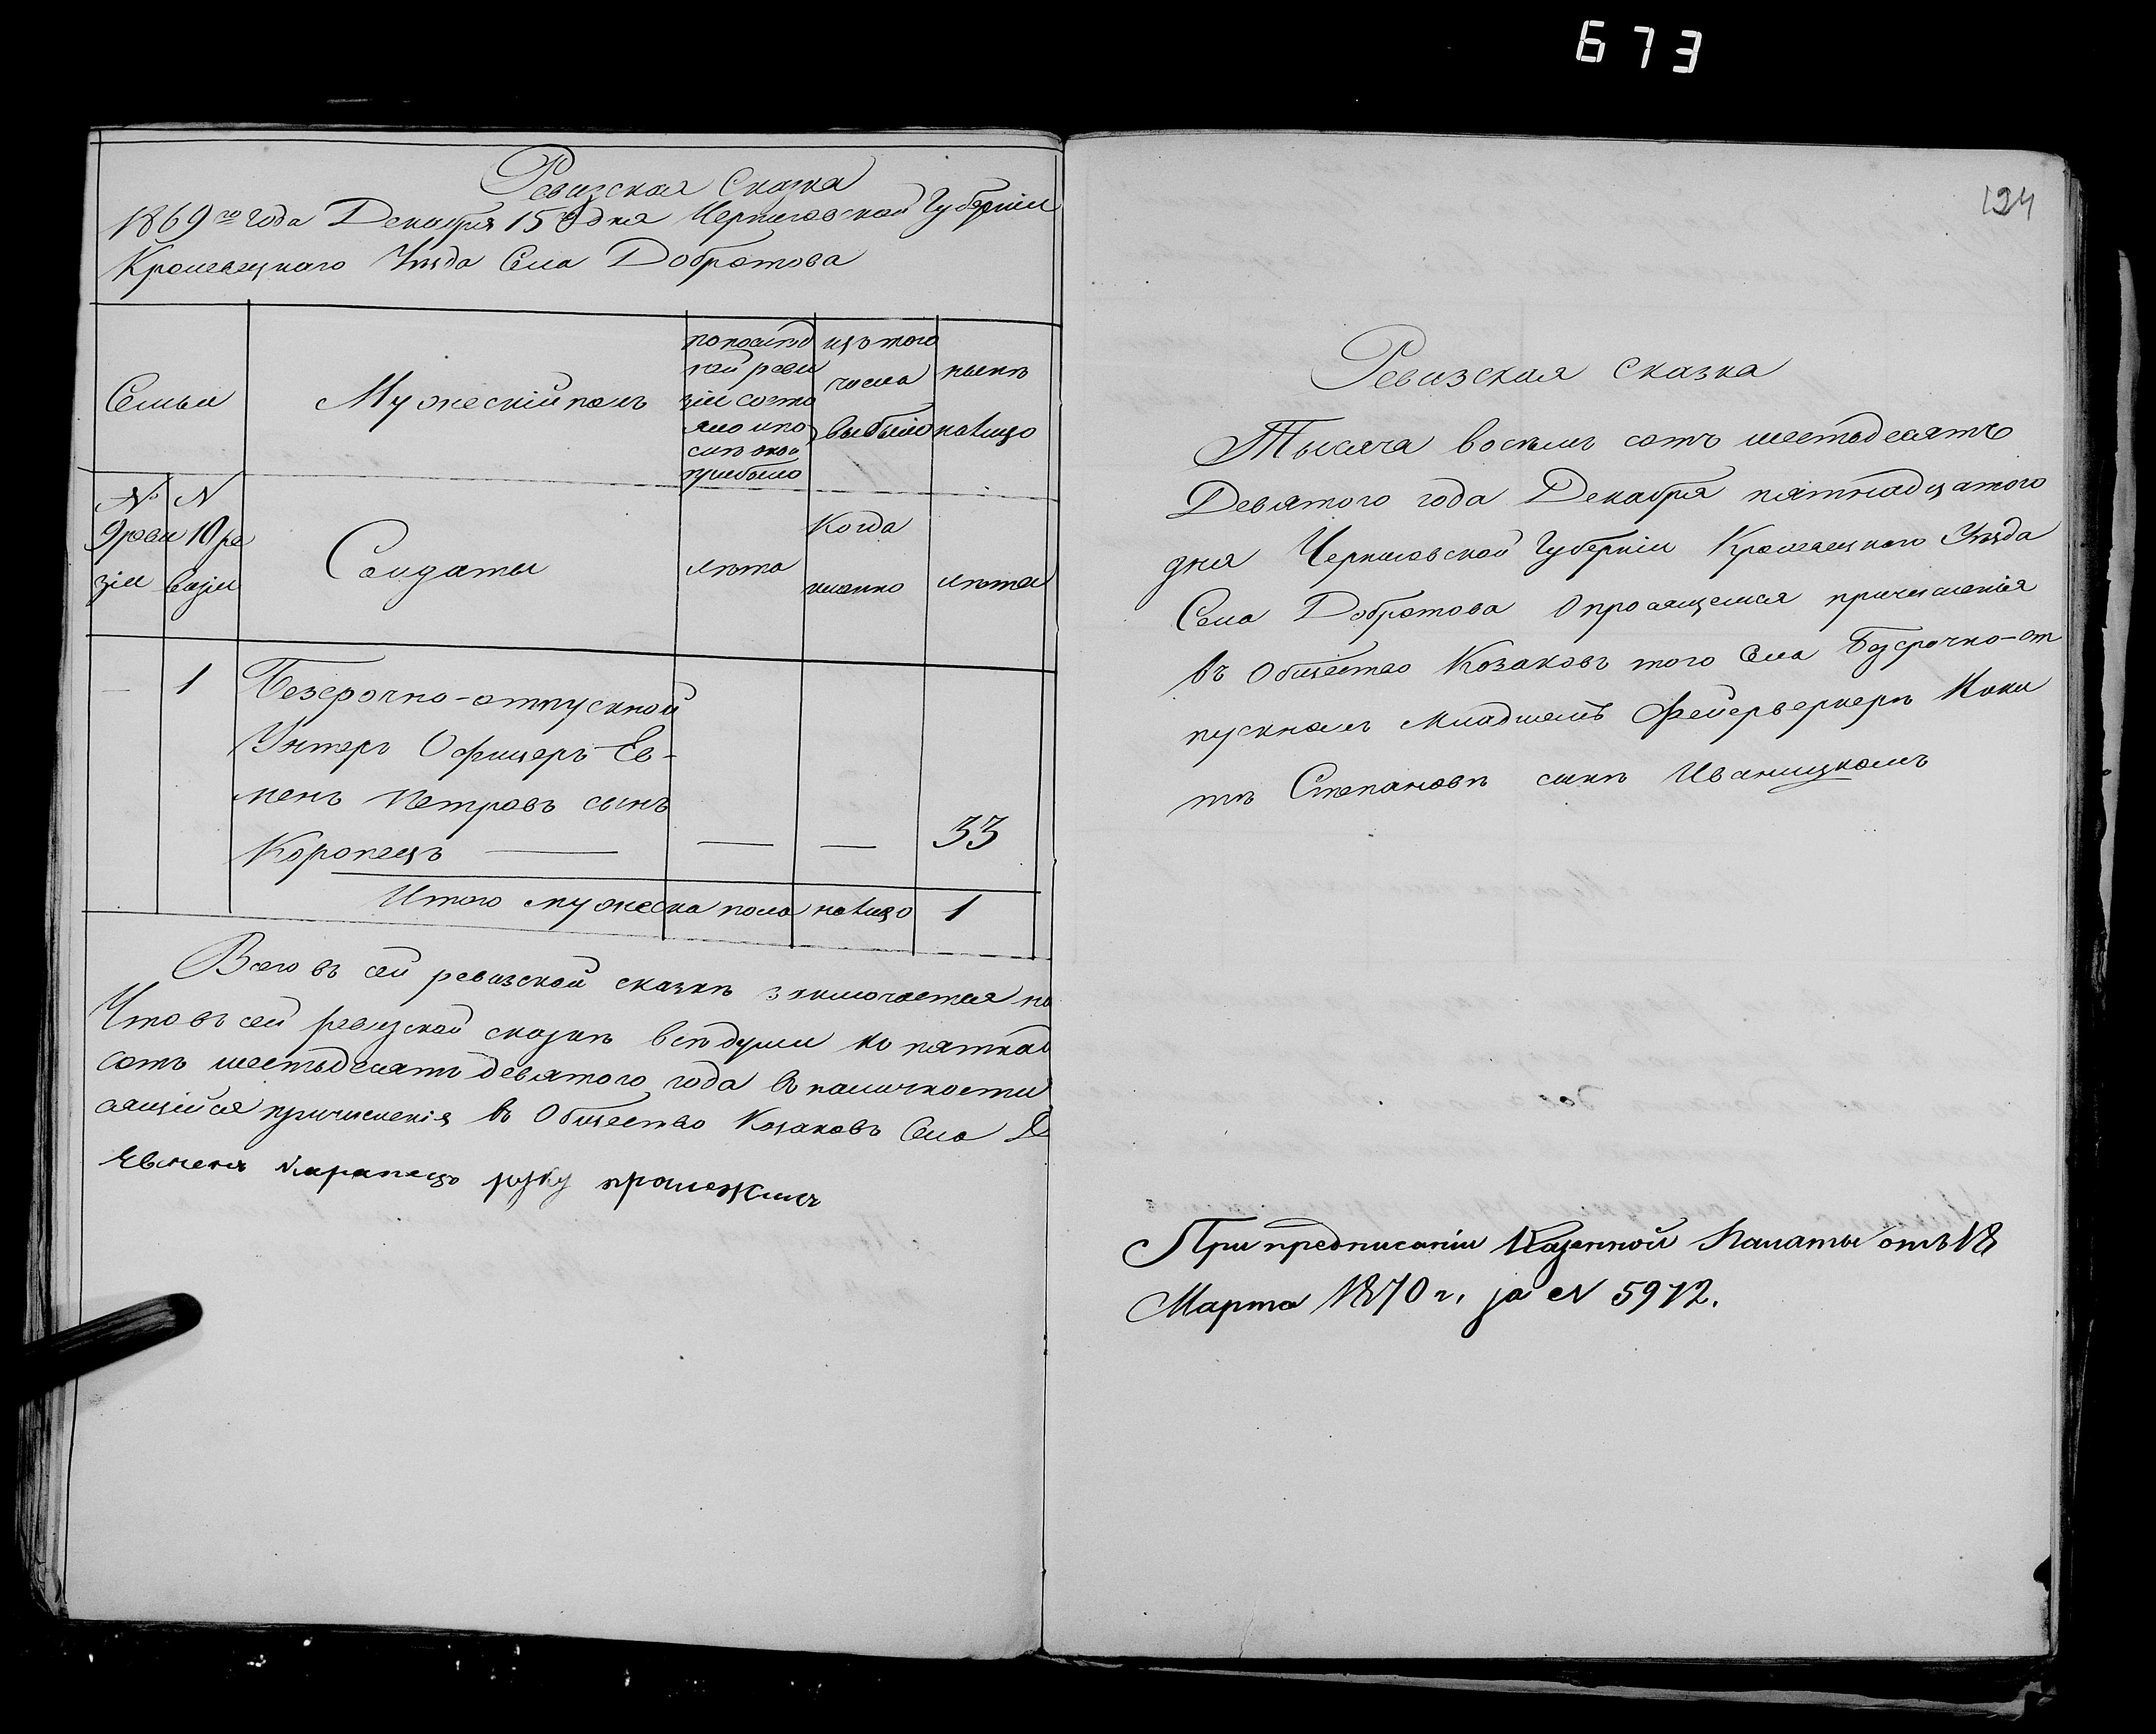 673
Ревизская Сказка
1869го года Декабря 15го дня Черниговской Губерніи
Кролевецкаго Уѣзда Села Добротова
Семьи
Мужескій полъ
по послѣд
ней реви
зіи состо
яло и по
слѣ оной
прибыло
изъ того
числа
выбыло
нынѣ
налицо
№ №
9 реви 10 ре
зіи визіи
Солдаты
лѣта
Когда
именно
лѣта
— 1 Безсрочно-отпускной
Унтеръ Офицеръ Ев-
менъ Петровъ сынъ
Коропецъ — — — 33
Итого мужеска пола налицо 1
Всего въ сей ревизской сказкѣ заключается на
Что въ сей ревизской сказкѣ всѣ души къ пятнад
сотъ шестьдесятъ девятого года въ наличности
сящійся причисленія въ Общество Козаковъ Села Д
Евменъ Карапецъ руку приложилъ
124
Ревизская сказка
Тысяча восемь сотъ шестьдесятъ
Девятого года Декабря пятнадцатого
дня Черниговской Губерніи Кролевецкого Уѣзда
Села Добротова О просящемся причисленія
въ Общество Козаковъ того Села Безсрочно-от
пускномъ Младшемъ Фейерверкерѣ Ники
тѣ Степановѣ сынѣ Иваницкомъ
При предписаніи Казенной Палаты отъ 18
Марта 1870 г. за № 5972.